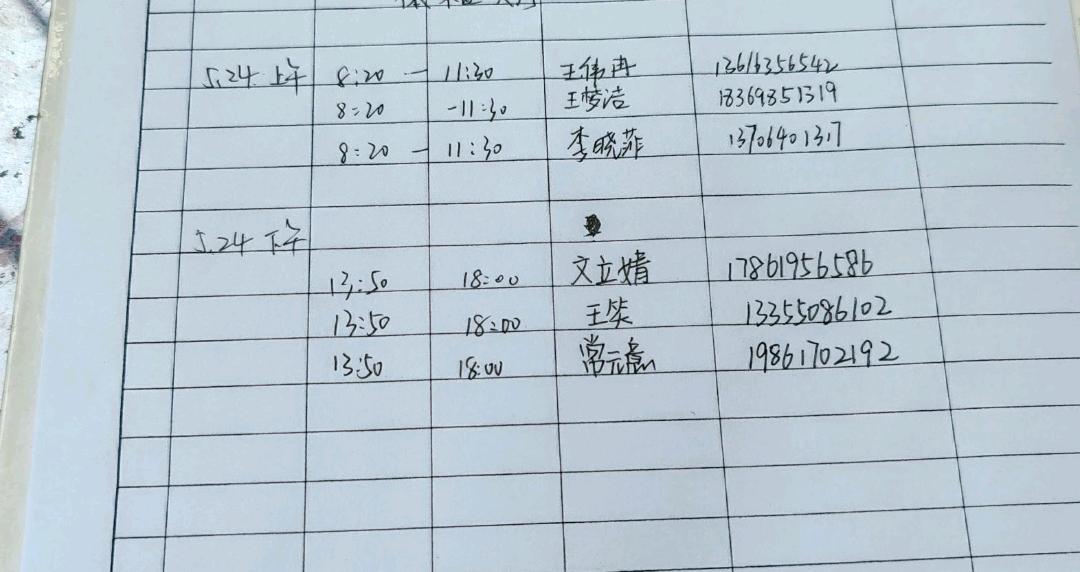 5.24 上午 8:20 — 11:30 王伟冉 13616356542
8:20 - 11:30 王梦洁 18369851319
8:20 — 11:30 李晓菲 13706401317
5.24 下午
13:50 18:00 文立婧 17861956586
13:50 18:00 王笑 13355086102
13:50 18:00 常元 19861702192